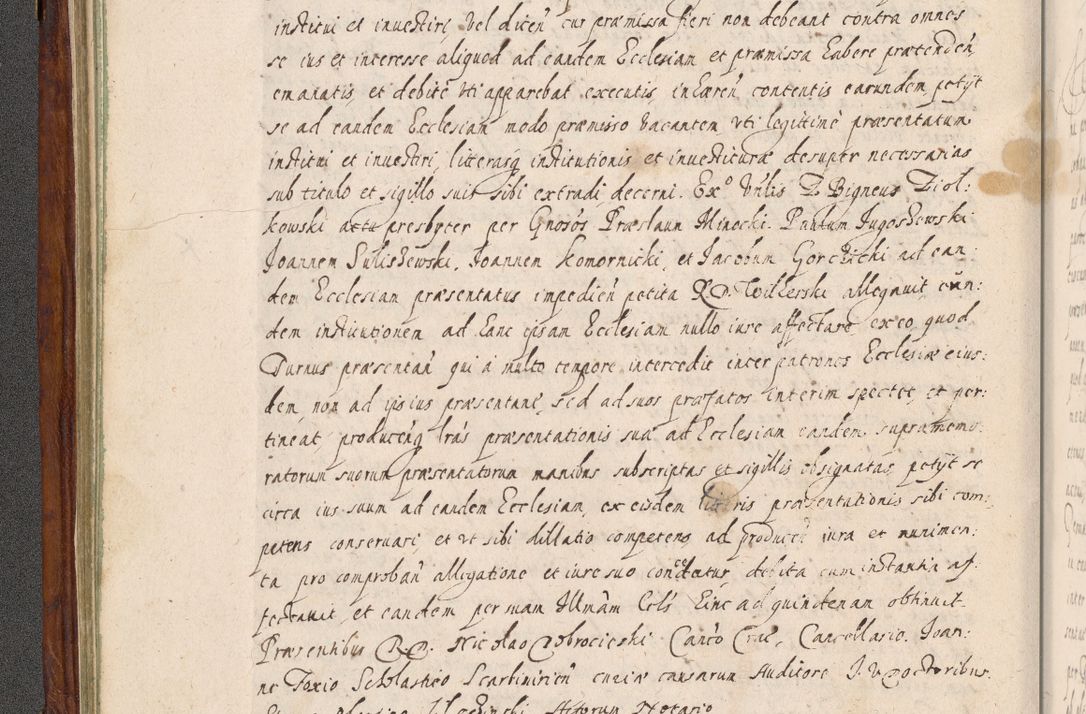 institui et inuestiri vel dicen̄ cur præmissa fieri non debeant contra omnes
se ius et interesse aliquod ad eandem Ecclesiam et præmissa habere prætenden̄,
emanatis, et debitè vti apparebat executis, inhæren̄ contentis earundem petÿt
se ad eandem Ecclesiam modo præmisso vacantem vti legittimè præsentatum
institui et inuestiri, litterasq̃ institutionis et inuestituræ desuper necessarias
sub titulo et sigillo suis sibi extradi decerni. Exº Vn̄lis D. Zbigneus Ziol:
kowski actu presbyter per Gn̄osos Præslaum Minocki. Paulum Jugoszewski
Joannem Suliszewski, Joannem Komornicki, et Jacobum Gorchicki ad ean:
dem Ecclesiam præsentatus impedien̄ petita R.D. Wilkerski allegauit eun:
dem institutionem ad hanc ipsam Ecclesiam nullo iure affectare ex eo quod
Turnus præsentan̄ qui à multo tempore intercedit inter patronos Ecclesiæ eius:
dem, non ad ipsius præsentan̄te, sed ad suos præfatos interim spectet, et per:
tineat, producen̄q̃ lr̄as præsentationis suæ ad Ecclesiam eandem supra memo:
ratorum suorum præsentatorum manibus subscriptas et sigillis obsignatas petÿt se
circa ius suum ad eandem Ecclesiam, ex eisdem litteris præsentationis sibi com:
petens conseruari, et vt sibi dillatio competens ad producen̄ iura et munimen:
ta pro comproban̄ allegatione et iure suo concedatur, debita cum instantia af:
fectauit, et eandem per suam Illmam Cels Einc ad quindenam obtinuit.
Præsentibus R.D. Nicolao Dobrocieski Can̄co Crac, Cancellario. Joan:
ne Foxio Scholastico Scarbimirien̄ curiæ causarum Auditore J. V. Doctoribus
Actorum Notario